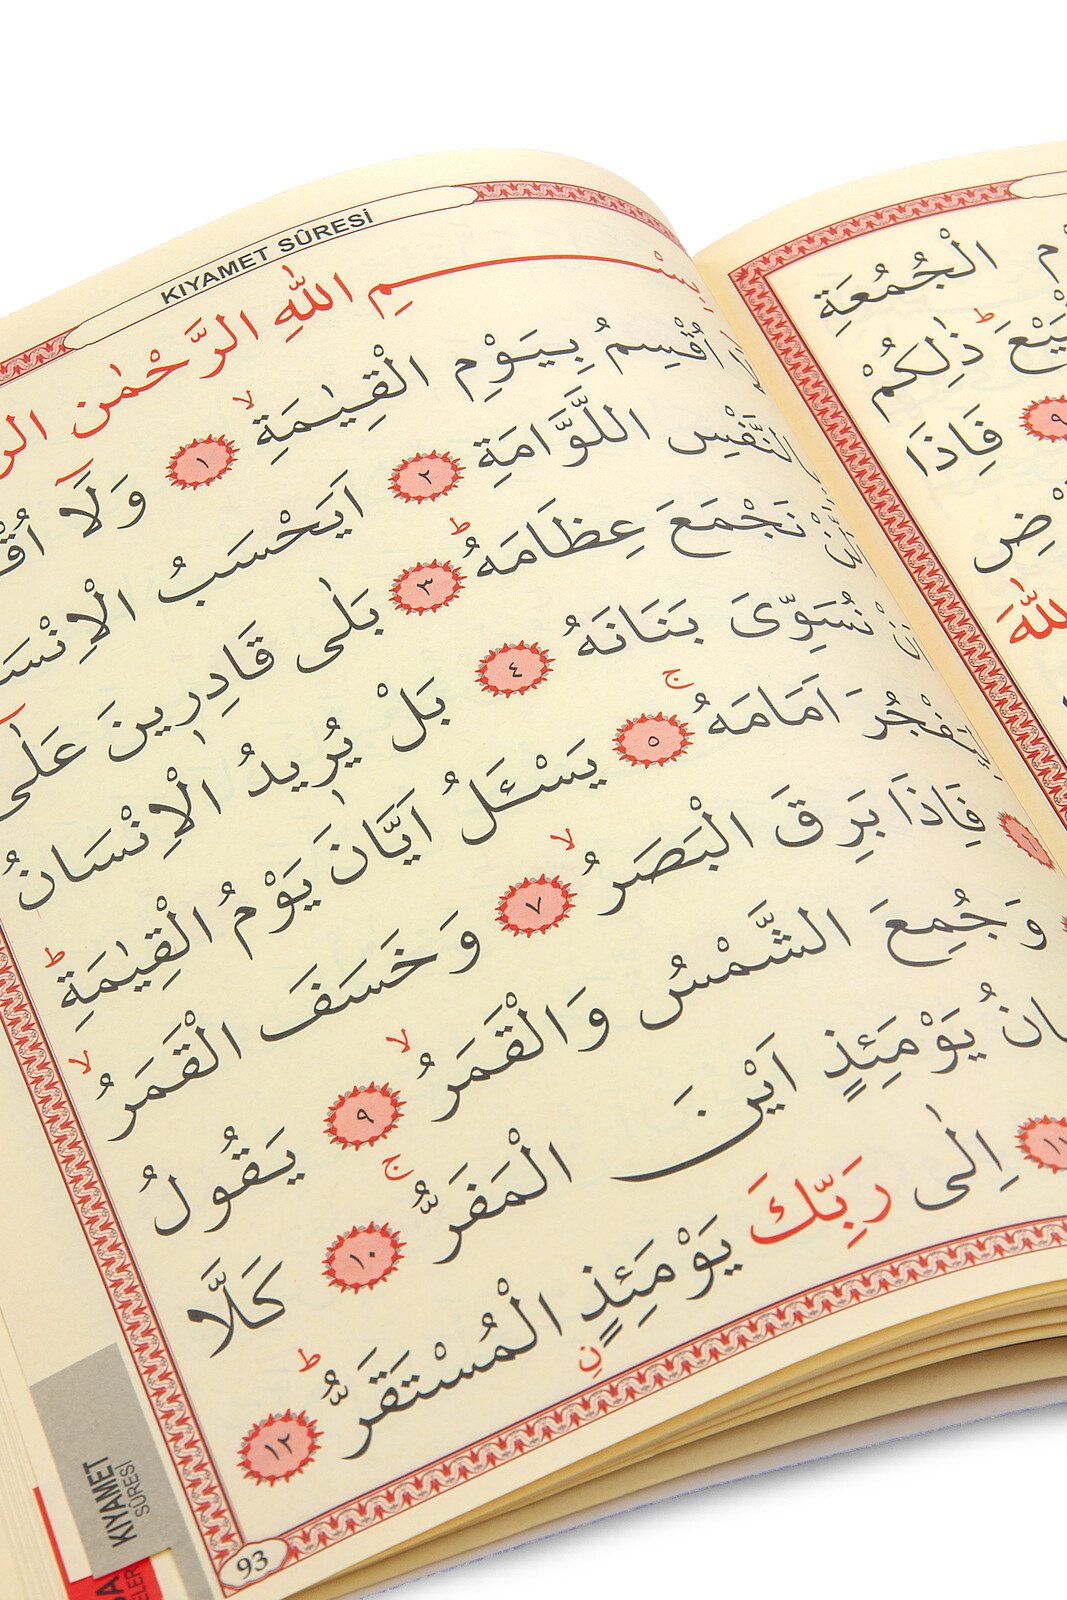 KIYAMET SÛRESİ
بِسْمِ اللّٰهِ الرَّحْمٰنِ
اُقْسِمُ بِيَوْمِ الْقِيٰمَةِۙ ١ وَلَٓا
بِالنَّفْسِ اللَّوَّامَةِ ٢ اَيَحْسَبُ
نَجْمَعَ عِظَامَهُۜ ٣ بَلٰى قَادِرِينَ عَلٰٓى
نُسَوِّىَ بَنَانَهُ ٤ بَلْ يُرِيدُ الْاِنْسَانُ
لِيَفْجُرَ اَمَامَهُۚ ٥ يَسْـَٔلُ اَيَّانَ يَوْمُ الْقِيٰمَةِۜ
فَاِذَا بَرِقَ الْبَصَرُۙ ٧ وَخَسَفَ الْقَمَرُۙ
وَجُمِعَ الشَّمْسُ وَالْقَمَرُۙ ٩ يَقُولُ
يَوْمَئِذٍ اَيْنَ الْمَفَرُّۚ ١٠ كَلَّا
١١ اِلٰى رَبِّكَ يَوْمَئِذٍ الْمُسْتَقَرُّۜ ١٢
93
KIYAMET
SÛRESİ
الْجُمُعَةِ
ذٰلِكُمْ
٩ فَاِذَا